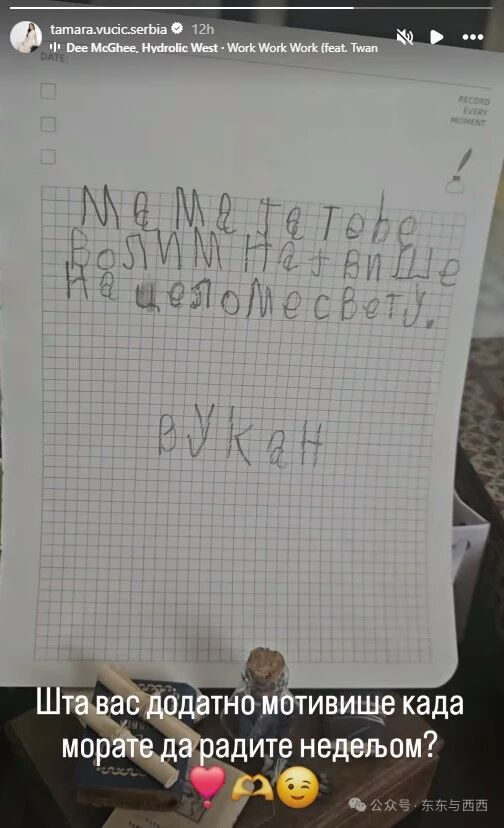 tamara.vucic.serbia 12h
Dee McGhee, Hydrolic West · Work Work Work (feat. Twan
DATE:
RECORD
EVERY
MOMENT
МАМА ЈА ТЕБЕ
ВОЛИМ НАЈВИШЕ
НА ЦЕЛОМЕ СВЕТУ.
ВУКАН
Шта вас додатно мотивише када
морате да радите недељом?
公众号 · 东东与西西